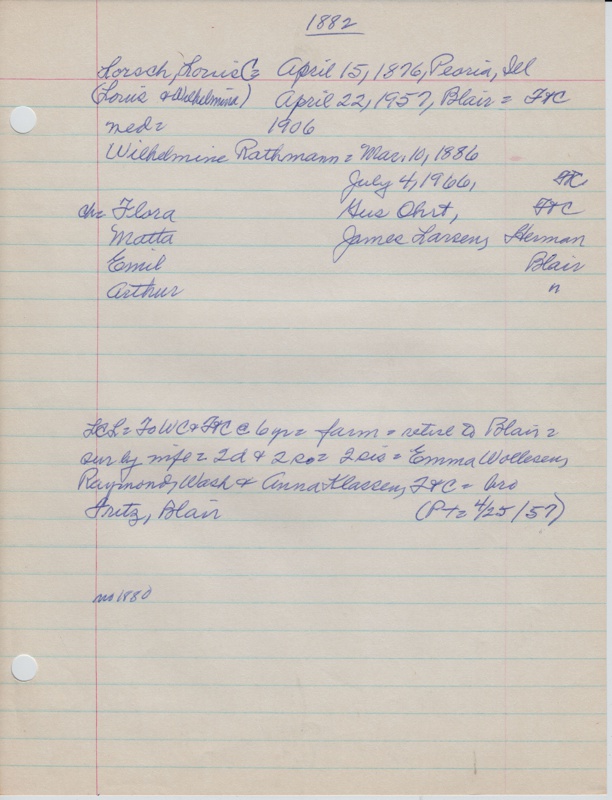 1882
Lorsch, Louis C = April 15, 1876, Peoria, Ill
(Louis & Wilhelmina) April 22, 1957, Blair = FtC
med = 1906
Wilhelmine Rathmann = Mar. 10, 1886
July 4, 1966, FtC
ch = Flora Gus Ohrt, FtC
Matta James Larsen, Herman
Emil Blair
Arthur "
LCL = To WC & FtC @ 6 yr = farm = retire to Blair =
sur by wife = 2 d & 2 so = 2 sis = Emma Wollesen,
Raymond, Wash & Anna Klassen, FtC = bro
Fritz, Blair (P-t = 4/25/57)
no 1880